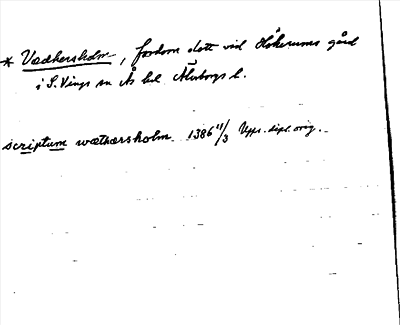 * Vædhersholm, fordom slott vid Hökerums gård
i S. Vings sn Ås hd Älvsborgs l.
scriptum wæthærsholm 1386 11/3 Uppl. dipl. orig.